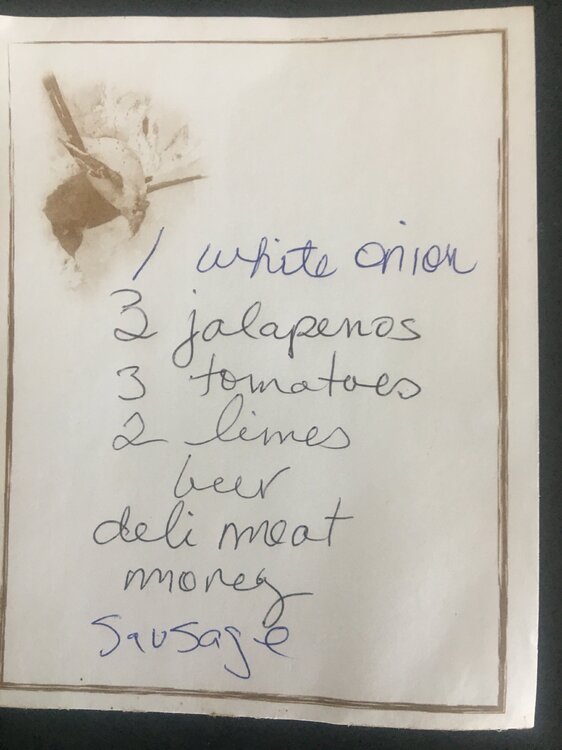 1 white onion
3 jalapenos
3 tomatoes
2 limes
beer
deli meat
money
Sausage